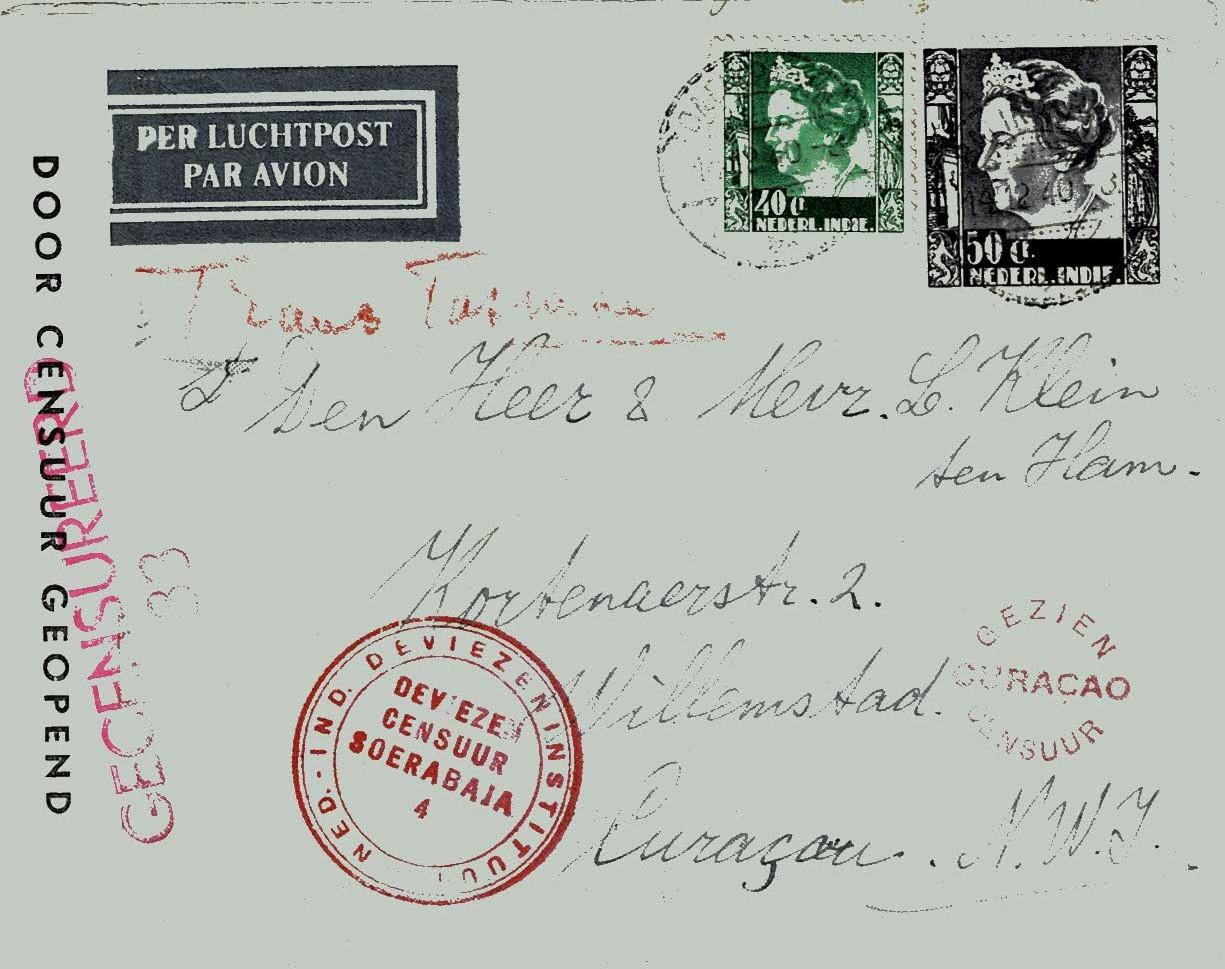 PER LUCHTPOST
PAR AVION
40 ct
NEDERL. INDIE.
50 ct
NEDERL. INDIE.
14.12.40
DOOR CENSUUR GEOPEND
GECENSUREERD
33
Trans
Den Heer & Mevr. L. Klein
ten Ham.
Kortenaerstr. 2.
Willemstad.
Curaçao. N.W.I.
NED.-IND. DEVIEZENINSTITUUT
DEVIEZEN
CENSUUR
SOERABAJA
4
GEZIEN
CURAÇAO
CENSUUR